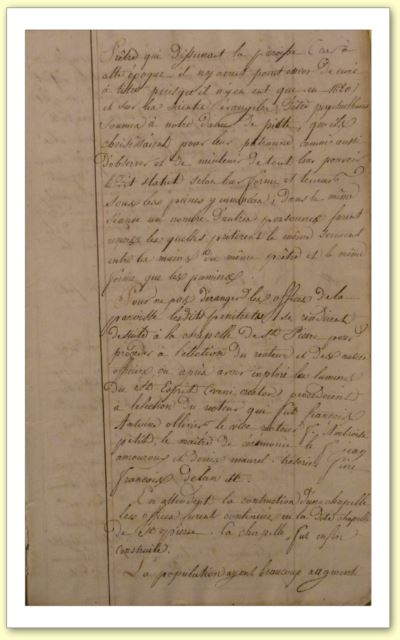 Prêtre qui Desservait la paroisse (car à
cette époque il n'y avait point encor De curé
à titre puisqu'il n'y en eut que en 1620)
et sur les saintes évangiles,
soumis à notre Dame de pitié, qu'ils
choisissaient pour leur patronne comme aussi
D'observer et De maintenir De tout leur pouvoir
le Dit statut selon leur forme et teneur
sous les peines y contenues; Dans la même
séance un nombre D'autres personnes furent
reçues lesquelles prêtèrent le même serment
entre les mains Du même prêtre et la même
forme que les premiers.
Pour ne pas Déranger les offices de la
paroisse les Dits pénitents se rendirent
de suite à la chapelle de St. Pierre pour
procéder à l'élection Du recteur et Des autres
officiers ou après avoir imploré les lumières
Du St. Esprit (veni creator) procédèrent
à l'élection Du recteur qui fut francois
Antoine ollivier, le vice recteur Ambroise
petit, le maître de cérémonie le Jean
amoureux et Denis maurel trésorier
francois
En attendant la construction D'une chapelle
les offices furent continués en la Dite chapelle
De St. pierre. La chapelle fut enfin
construite.
La population ayant beaucoup augmenté